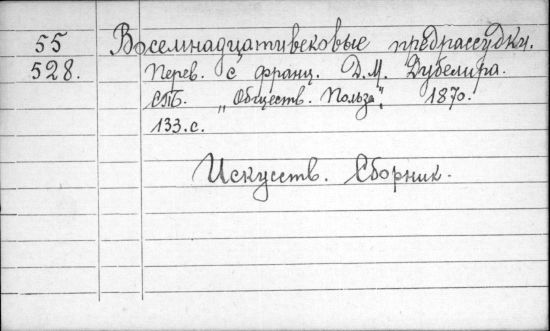 55 Восемнадцативековые предрассудки.
528. Перев. с франц. Д.М. Дубелира.
СПБ. „Обществ. Польза", 1870.
133.с.
Искусств. Сборник.